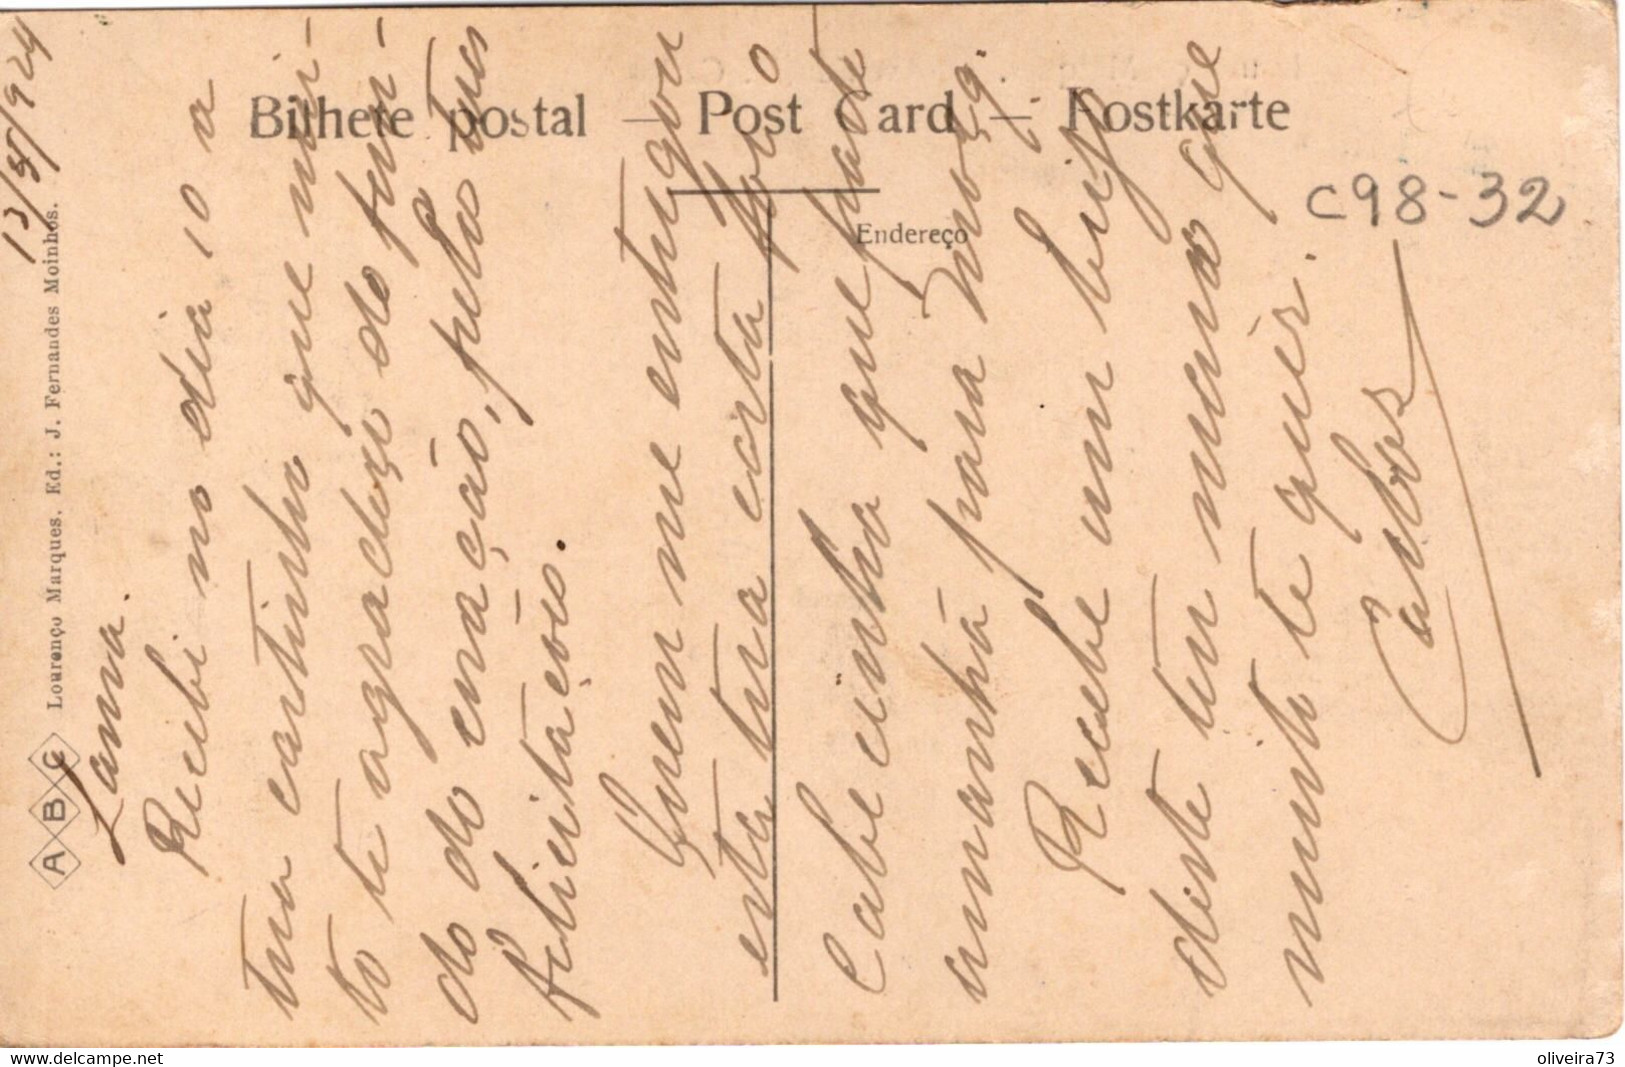 Bilhete postal — Post Card — Postkarte
Endereço
C98-32
A B C Lourenço Marques. Ed.: J. Fernandes Moinhos.
13/5/924
Lama.
Recebi no dia 10 a
tua cartinha que mui-
to te agradeço do fun-
do do coração, pelas tuas
felicitações.
Quem me entregou
esta tua carta foi o
Cabecinha que parte
amanhã para Moç.
Recebe um beijo
deste teu mano que
muito te quer.
Carlos
oliveira73